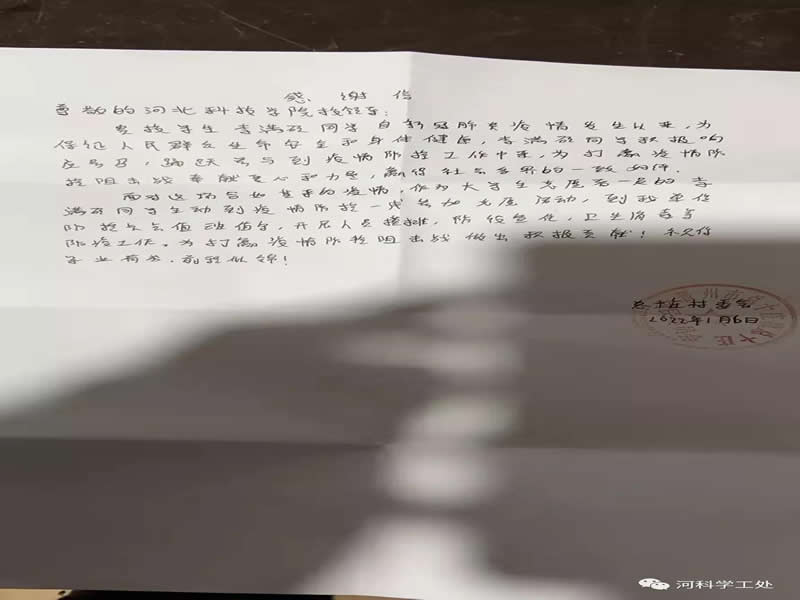 感谢信
尊敬的河北科技学院校领导:
贵校学生李满硕同学自新冠肺炎疫情发生以来,为
保证人民群众生命安全和身体健康,李满硕同学积极响
应号召,踊跃参与到疫情防控工作中来,为打赢疫情防
控阻击战奉献爱心和力量,赢得社会各界的一致好评。
面对这场突如其来的疫情,作为大学生志愿者一员的李
满硕同学主动到疫情防控一线参加志愿活动,到我单位
防控点值班值守,开展人员摸排,防控宣传,卫生消毒等
防疫工作。为打赢疫情防控阻击战做出积极贡献!祝
学业有成,前程似锦!
村委会
2022年1月6日
河科学工处